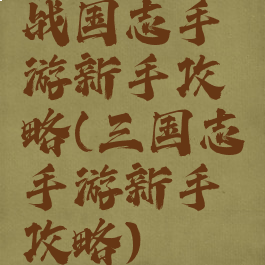 战国志手
游新手攻
略(三国志
手游新手
攻略)